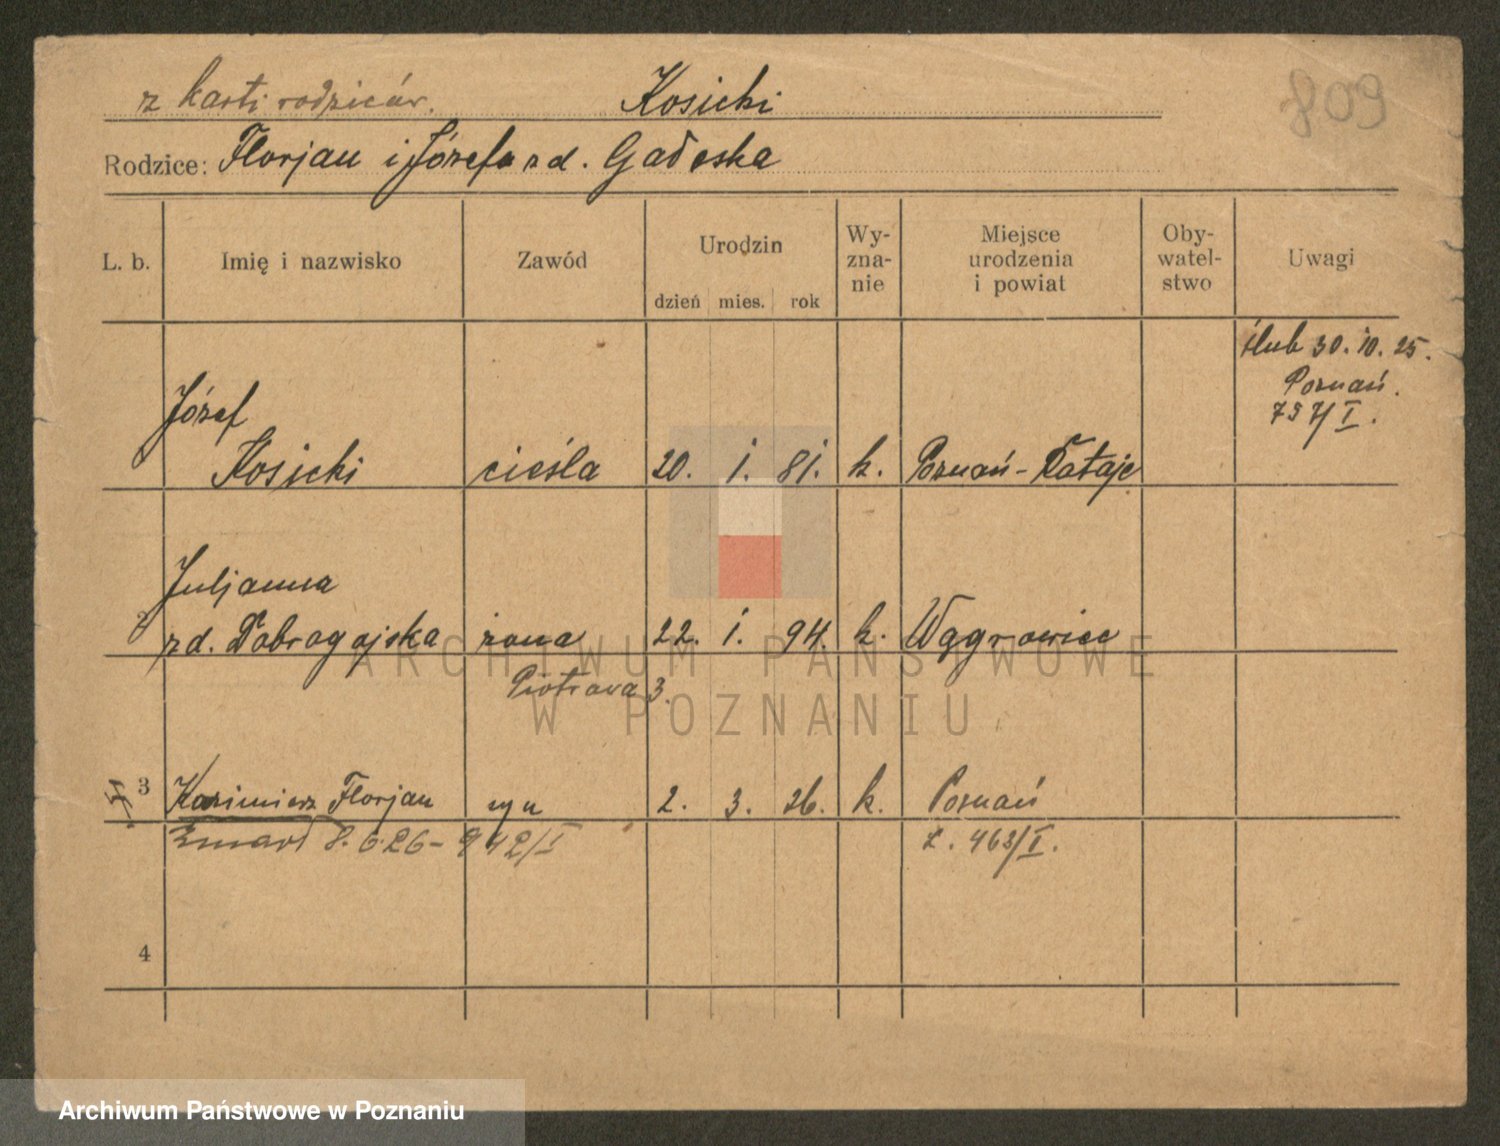 z karti rodziców. Kosicki 809
Rodzice: Florjan i Józefa zd. Gadeska
L. b. Imię i nazwisko Zawód Urodzin dzień mies. rok Wy-zna-nie Miejsce urodzenia i powiat Oby-watel-stwo Uwagi
ślub 30. 10. 25.
Poznań.
757/I.
Józef
Kosicki cieśla 20. 1. 81. k. Poznań-Rataje
Juljanna
2 zd. Dobrogojska żona 22. 1. 94. k. Wągrowiec
Piotrowa 3.
3 Kazimierz Florjan syn 2. 3. 26. k. Poznań
Zmarł 8. 6. 26 - 942/I Z. 463/I.
4
ARCHIWUM PAŃSTWOWE
W POZNANIU
Archiwum Państwowe w Poznaniu